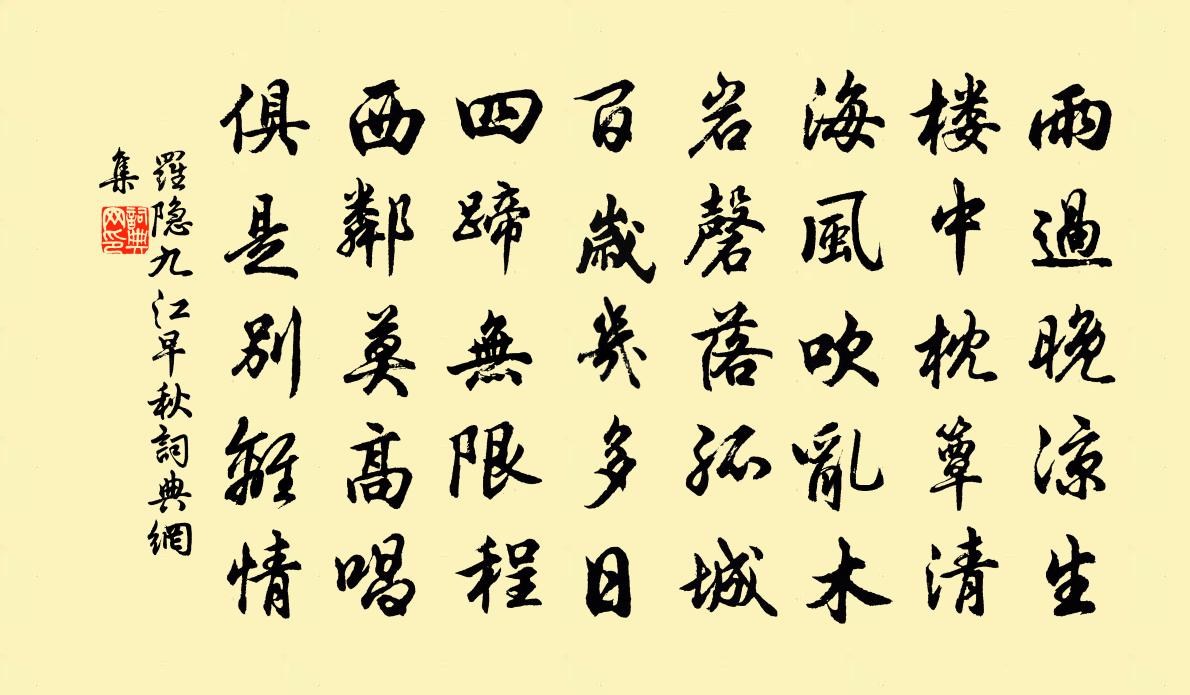 雨過晚涼生
楼中枕簟清
海風吹亂木
岩磬落孤城
百歲幾多日
四蹄無限程
西鄰莫高唱
俱是別離情
羅隐九江早秋詞典網
集
詞典網印